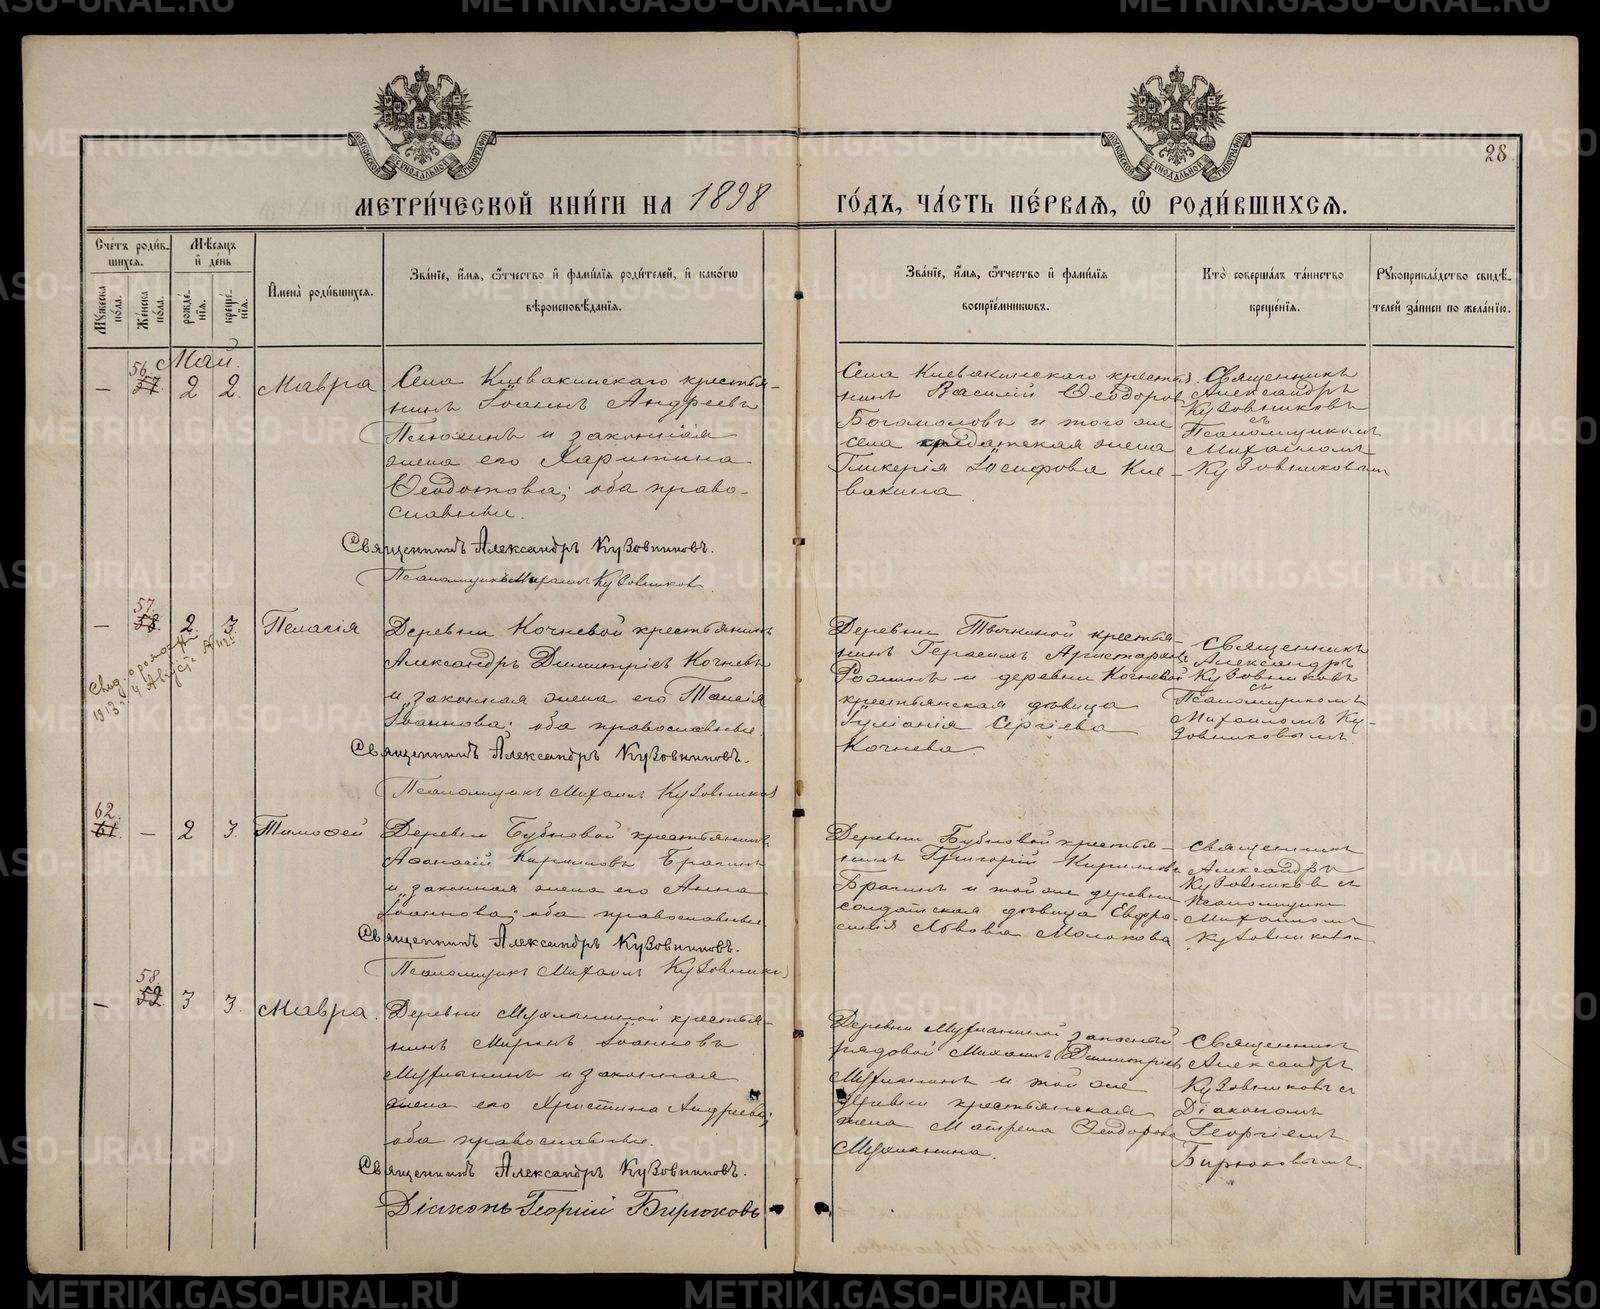 28
МЕТРИ́ЧЕСКОЙ КНИ́ГИ НА 1898 ГО́ДЪ, ЧА́СТЬ ПЕ́РВАЯ, Ѡ҆ РОДИ́ВШИХСЯ.
Сче́тъ роди́в-
шихся.
Мѣ́сяцъ
и҆ де́нь
Му́жеска
по́ла.
Же́нска
по́ла.
рожде́-
нїя.
креще́-
нїя.
И҆мена̀ роди́вшихся.
Зва́нїе, и҆́мя, ѻ҆́тчество и҆ фами́лїя роди́телей, и҆ како́гѡ
вѣроисповѣ́данїя.
Зва́нїе, и҆́мя, ѻ҆́тчество и҆ фами́лїя
воспрїе́мникѡвъ.
Кто̀ соверша́лъ та́инство
креще́нїя.
Рꙋкоприкла́дство свидѣ́-
телей за́писи по жела́нїю.
Май.
56.
57
— 2 2. Мавра
Села Клевакинскаго крестья-
нинъ Іоаннъ Андреевъ
и законная
жена его Харитина
Ѳеодотова; оба право-
славные.
Священникъ Александръ Кузовниковъ.
Псаломщикъ Михаилъ Кузовников
Села Клевакинскаго крестья-
нинъ Василій Ѳеодоров
Богомоловъ и того же
села солдатская жена
Гликерія Іосифова Кле-
вакина
Священникъ
Александръ
Кузовниковъ
съ
Псаломщикомъ
Михаиломъ
Кузовниковымъ
57.
58.
— 2. 3. Пелагія
4 Августа
1913
Деревни Кочневой крестьянинъ
Александръ Димитріев Кочневъ
и законная жена его Таисія
Іоаннова; оба православные.
Священникъ Александръ Кузовниковъ.
Псаломщикъ Михаилъ Кузовников
Деревни крестья-
нинъ Герасимъ Аристархов
и деревни Кочневой
крестьянская дѣвица
Іуліанія Сергіева
Кочнева
Священникъ
Александръ
Кузовниковъ
съ
Псаломщикомъ
Михаиломъ Ку-
зовниковымъ.
62.
61.
— 2 3. Тимофей
Деревни Бубновой крестьянинъ
Аѳанасій Кириловъ Брагинъ
и законная жена его Анна
Іоаннова; оба православные.
Священникъ Александръ Кузовниковъ.
Псаломщикъ Михаилъ Кузовников
Деревни Бубновой крестья-
нинъ Григорій Кириловъ
Брагинъ и той же деревни
солдатская дѣвица Евфра-
сиія Львова Молокова
Священникъ
Александръ
Кузовников съ
Псаломщик
Михаиломъ
Кузовниковы
58.
59.
— 3 3. Мавра.
Деревни Мухлыниной крестья-
нинъ Миронъ Іоанновъ
Мухлынинъ и законная
жена его Христина Андреева;
оба православные.
Священникъ Александръ Кузовниковъ.
Діаконъ Георгій Бирюковъ
Деревни Мухлыниной запасной
рядовой Михаилъ Димитріевъ
Мухлынинъ и той же
деревни крестьянская
жена Матрена Ѳеодорова
Мухлынина.
Священникъ
Александръ
Кузовниковъ съ
Діакономъ
Георгіемъ
Бирюковымъ.
METRIKI.GASO-URAL.RU